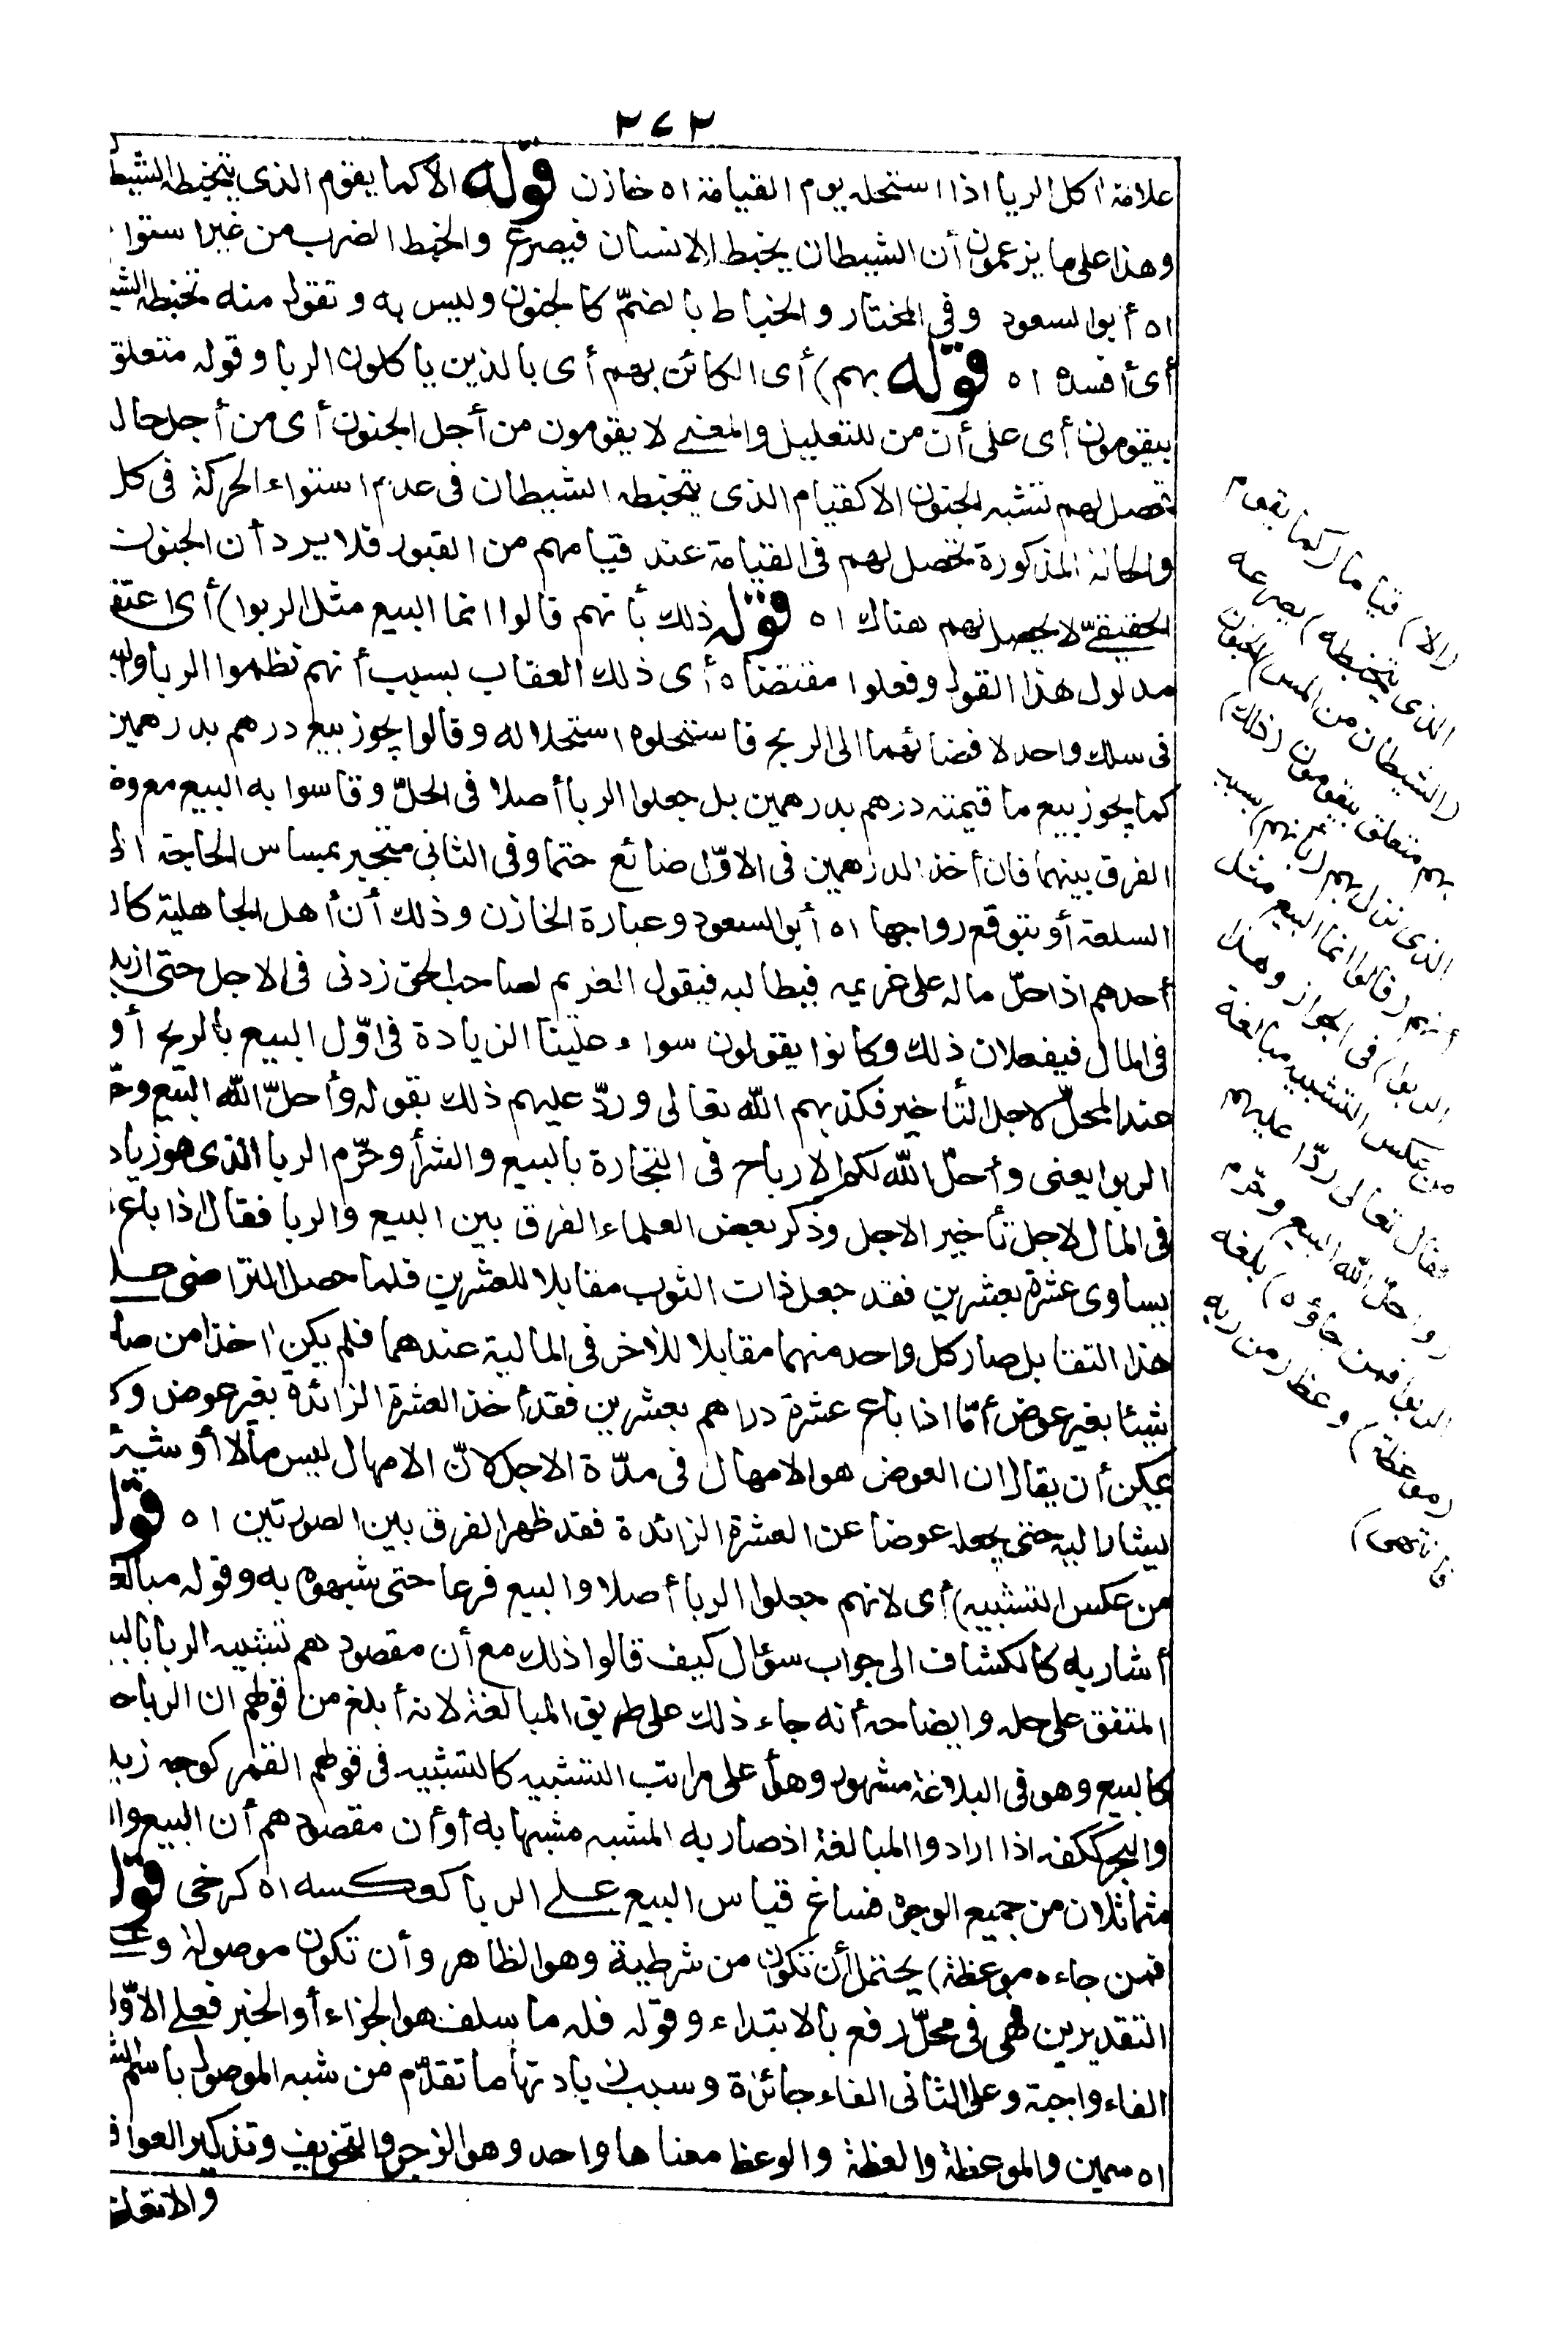 ٢٧٢
علامة آكل الربا اذا استحله يوم القيامة اه خازن قوله الا كما يقوم الذى يتخبطه الشيط
وهذا على ما يزعمون أن الشيطان يخبط الانسان فيصرع والخبط الضرب من غير استوا
اه أبو السعود وفى المختار والخباط بالضمّ كالجنون وليس به وتقول منه تخبطه الشي
أى أفسده اه قوله بهم) أى الكائن بهم أى بالذين ياكلون الربا وقوله متعلق
بيقومون أى على أن من للتعليل والمعنى لا يقومون من أجل الجنون أى من أجل حال
تحصل لهم تشبه الجنون الا كقيام الذى يتخبطه الشيطان فى عدم استواء الحركة فى كل
والحالة المذكورة تحصل لهم فى القيامة عند قيامهم من القبور فلا يرد أن الجنون
الحقيقىّ لا يحصل لهم هناك اه قوله ذلك بأنهم قالوا انما البيع مثل الربوا) أى اعتق
مدلول هذا القول وفعلوا مقتضاه أى ذلك العقاب بسبب أنهم نظموا الربا والب
فى سلك واحد لافضائهما الى الربح فاستحلوه استحلاله وقالوا يجوز بيع درهم بدرهمين
كما يجوز بيع ما قيمته درهم بدرهمين بل جعلوا الربا أصلا فى الحلّ وقاسوا به البيع مع وض
الفرق بينهما فان أخذ الدرهمين فى الاوّل ضائع حتما وفى الثانى منجبر بمساس الحاجة ال
السلعة أو بتوقع رواجها اه أبو السعود وعبارة الخازن وذلك أن أهل الجاهلية كان
أحدهم اذا حلّ ماله على غريمه فيطالبه فيقول الغريم لصاحب الحق زدنى فى الاجل حتى ازيد
فى المال فيفعلان ذلك وكانوا يقولون سواء علينا الزيادة فى اوّل البيع بالربح أو
عند المحلّ لاجل التأخير فكذبهم الله تعالى وردّ عليهم ذلك بقوله وأحلّ الله البيع وحر
الربوا يعنى وأحل الله لكم الارباح فى التجارة بالبيع والشرأ وحرّم الربا الذى هو زياد
فى المال لاجل تأخير الاجل وذكر بعض العلماء الفرق بين البيع والربا فقال اذا باع
يساوى عشرة بعشرين فقد جعل ذات الثوب مقابلا للعشرين فلما حصل التراضى على
هذا التقابل صار كل واحد منهما مقابلا للآخر فى المالية عندهما فلم يكن اخذا من صا
شيئا بغير عوض أمّا اذا باع عشرة دراهم بعشرين فقد أخذ العشرة الزائدة بغير عوض و
يمكن أن يقال ان العوض هو الامهال فى مدّة الاجل لانّ الامهال ليس مالا أو شيئ
يشار اليه حتى يجعله عوضا عن العشرة الزائدة فقد ظهر الفرق بين الصورتين اه قول
من عكس التشبيه) أى لانهم جعلوا الربا أصلا والبيع فرعا حتى شبهوه به وقوله مبالغ
أشار به كالكشاف الى جواب سؤال كيف قالوا ذلك مع أن مقصودهم تشبيه الربا بالبي
المتفق على حله وايضاحه أنه جاء ذلك على طريق المبالغة لانه أبلغ من قولهم ان الربا ح
كالبيع وهو فى البلاغة مشهور وهو أعلى مراتب التشبيه كالتشبيه فى قولهم القمر كوجه زيد
والبحر ككفه اذا ارادوا المبالغة اذ صار به المشبه مشبها به أو أن مقصودهم أن البيع وال
متماثلان من جميع الوجوه فساغ قياس البيع على الربا كعكسه اه كرخى قول
فمن جاءه موعظة) يحتمل أن تكون من شرطية وهو الظاهر وأن تكون موصولة وعلى
التقديرين فهى فى محلّ رفع بالابتداء وقوله فله ما سلف هو الجزاء أو الخبر فعلى الاوّل
الفاء واجبة وعلى الثانى الفاء جائزة وسبب زيادتها ما تقدّم من شبه الموصول باسم الش
اه سمين والموعظة والعظة والوعظ معناها واحد وهو الزجر والتخويف وتذكير العواق
والاتعاظ
(الا) قياما (كما يقوم
الذى يتخبطه) يصرعه
(الشيطان من المس) الجنون
بهم متعلق بيقومون (ذلك)
الذى نزل بهم (بأنهم) بسبب
أنهم (قالوا انما البيع مثل
الربوا) فى الجواز وهذا
من عكس التشبيه مبالغة
فقال تعالى ردّا عليهم
(وأحلّ الله البيع وحرّم
الربوا فمن جاءه) بلغه
(موعظة) وعظ (من ربه
فانتهى)